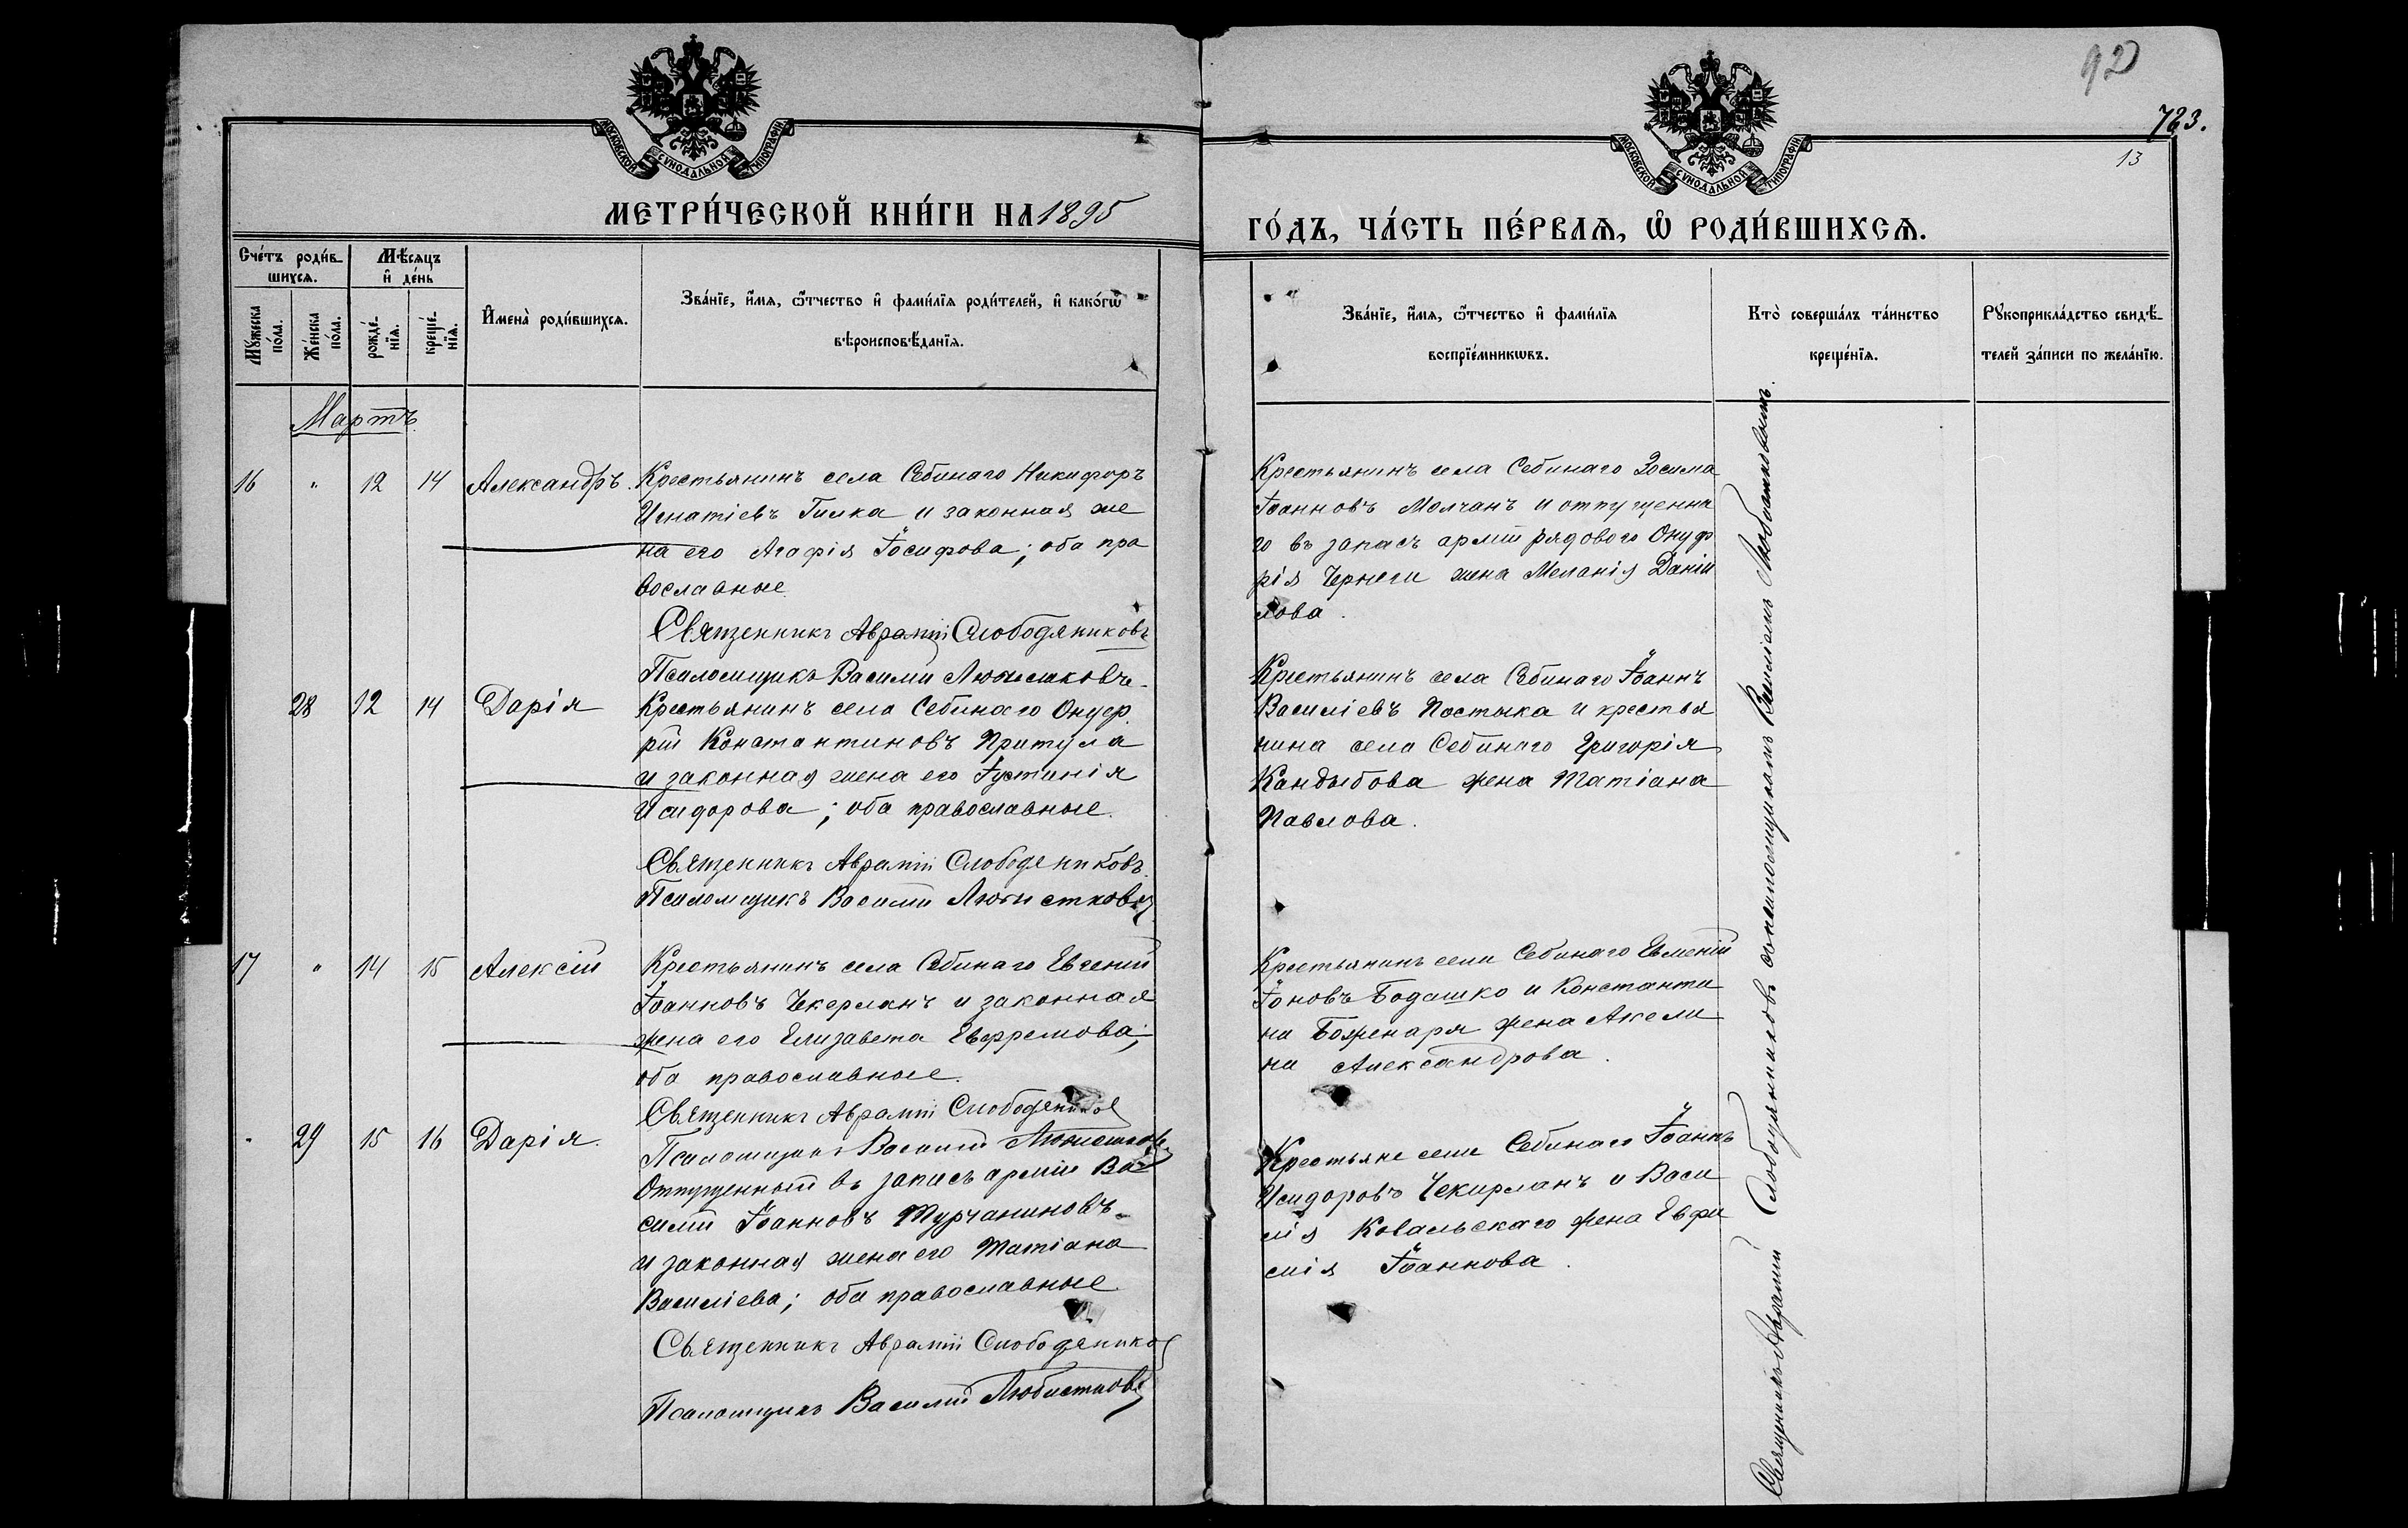 92
723.
13
МОСКОВСКОЙ СѴНОДАЛЬНОЙ ТИПОГРАФІИ
МОСКОВСКОЙ СѴНОДАЛЬНОЙ ТИПОГРАФІИ
МЕТРИ́ЧЕСКОЙ КНИ́ГИ НА 1895
ГО́ДЪ, ЧА́СТЬ ПЕ́РВАѦ, Ѡ҆ РОДИ́ВШИХСѦ.
Сче́тъ роди́в-
шихсѧ.
Мѣ́сѧцъ
и҆ де́нь
Мꙋ́жеска
по́ла.
Же́нска
по́ла.
рожде́-
нїѧ.
креще́-
нїѧ.
И҆мена̀ роди́вшихсѧ.
Зва́нїе, и҆́мѧ, ѻ҆́тчество и҆ фами́лїѧ роди́телей, и҆ како́гѡ
вѣроисповѣ́данїѧ.
Зва́нїе, и҆́мѧ, ѻ҆́тчество и҆ фами́лїѧ
воспрїе́мникѡвъ.
Кто̀ соверша́лъ та́инство
креще́нїѧ.
Рꙋкоприкла́дство свидѣ́-
телей за́писи по жела́нїю.
Мартъ
16 " 12 14 Александръ.
Крестьянинъ села Себинаго Никифоръ
Игнатіевъ Гилка и законная же
на его Агафія Іосифова; оба пра
вославные.
Священникъ Аврамій Слободяниковъ
Псаломщикъ Василій Любистковъ.
Крестьянинъ села Себинаго Зосима
Іоанновъ Молчанъ и отпущенна
го въ запасъ арміи рядового Онуф
рія Чернеги жена Меланія Даніи
лова.
28 12 14 Дарія
Крестьянинъ села Себинаго Онуф
рій Константиновъ Притула
и законная жена его Іустинія
Исидорова; оба православные.
Священникъ Аврамій Слободяниковъ.
Псаломщикъ Василій Любистковъ
Крестьянинъ села Себинаго Іоаннъ
Василіевъ Постыка и крестья
нина села Себинаго Григорія
Кандыбова жена Татіана
Павлова.
17 " 14 15 Алексій
Крестьянинъ села Себинаго Евгеній
Іоанновъ Чекерланъ и законная
жена его Елизавета Ефремова;
оба православные.
Священникъ Аврамій Слободяниковъ
Псаломщикъ Василій Любистковъ
Крестьянинъ села Себинаго Евменій
Іоновъ Бодашко и Константи
на Боженаря жена Акели
на Александрова.
" 29 15 16 Дарія.
Отпущенный въ запасъ арміи Ва
силій Іоанновъ Турчаниновъ
и законная жена его Татіана
Василіева; оба православные
Священникъ Аврамій Слободяниковъ
Псаломщикъ Василій Любистковъ
Крестьяне села Себинаго Іоаннъ
Исидоровъ Чекирланъ и Васи
лія Ковальскаго жена Евфи
мія Іоаннова.
Священникъ Аврамій Слободяниковъ съ псаломщикомъ Василіемъ Любистковымъ.